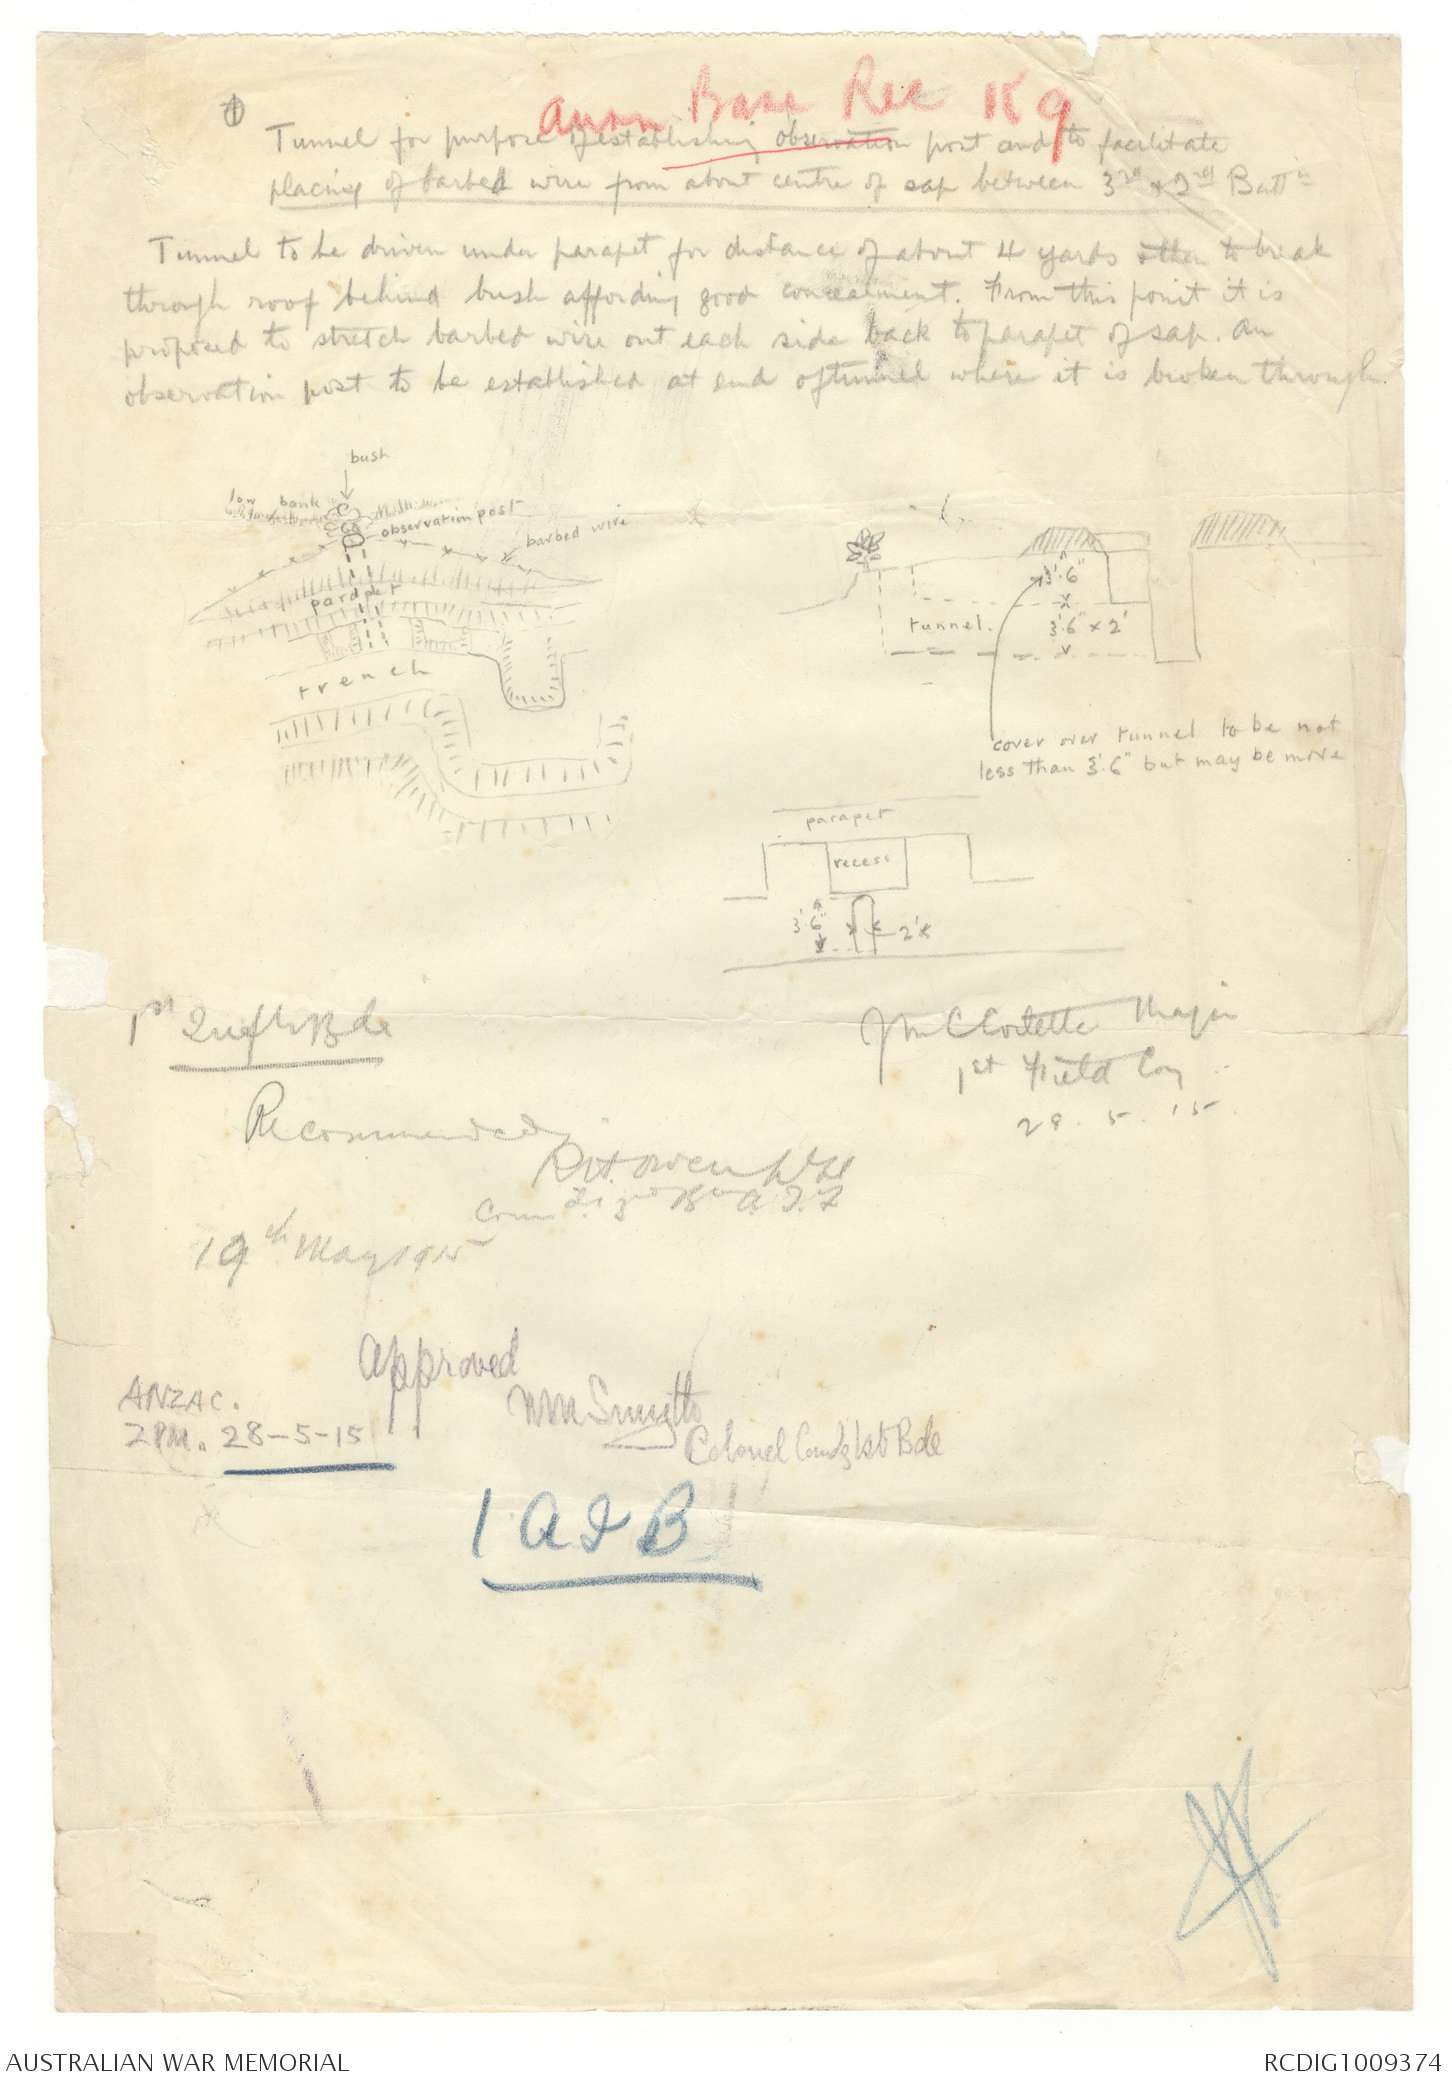 Base Rec K9
1
Tunnel for purpose of establishing observation post and to facilitate
placing of barbed wire from about centre of sap between 3rd & 2nd Battns
Tunnel to be driven under parapet for distance of about 4 yards & then to break
through roof behind bush affording good concealment. From this point it is
proposed to stretch barbed wire out each side back to parapet of sap. An
observation post to be established at end of tunnel where it is broken through.
bush
low bank
observation post
barbed wire
parapet
trench
3'.6"
tunnel.
3'.6" x 2'
cover over tunnel to be not
less than 3'.6" but may be more
parapet
recess
3'.6"
2'
1st Inf Bde
Major
1st Field Coy
28.5.15
Recommended
R H Owen Lt Col
Com 3rd Bn A.I.F
19th May 1915
Approved
ANZAC.
2 PM. 28-5-15
Smyth
Colonel Comdg 1st Bde
1 A I B
AUSTRALIAN WAR MEMORIAL
RCDIG1009374